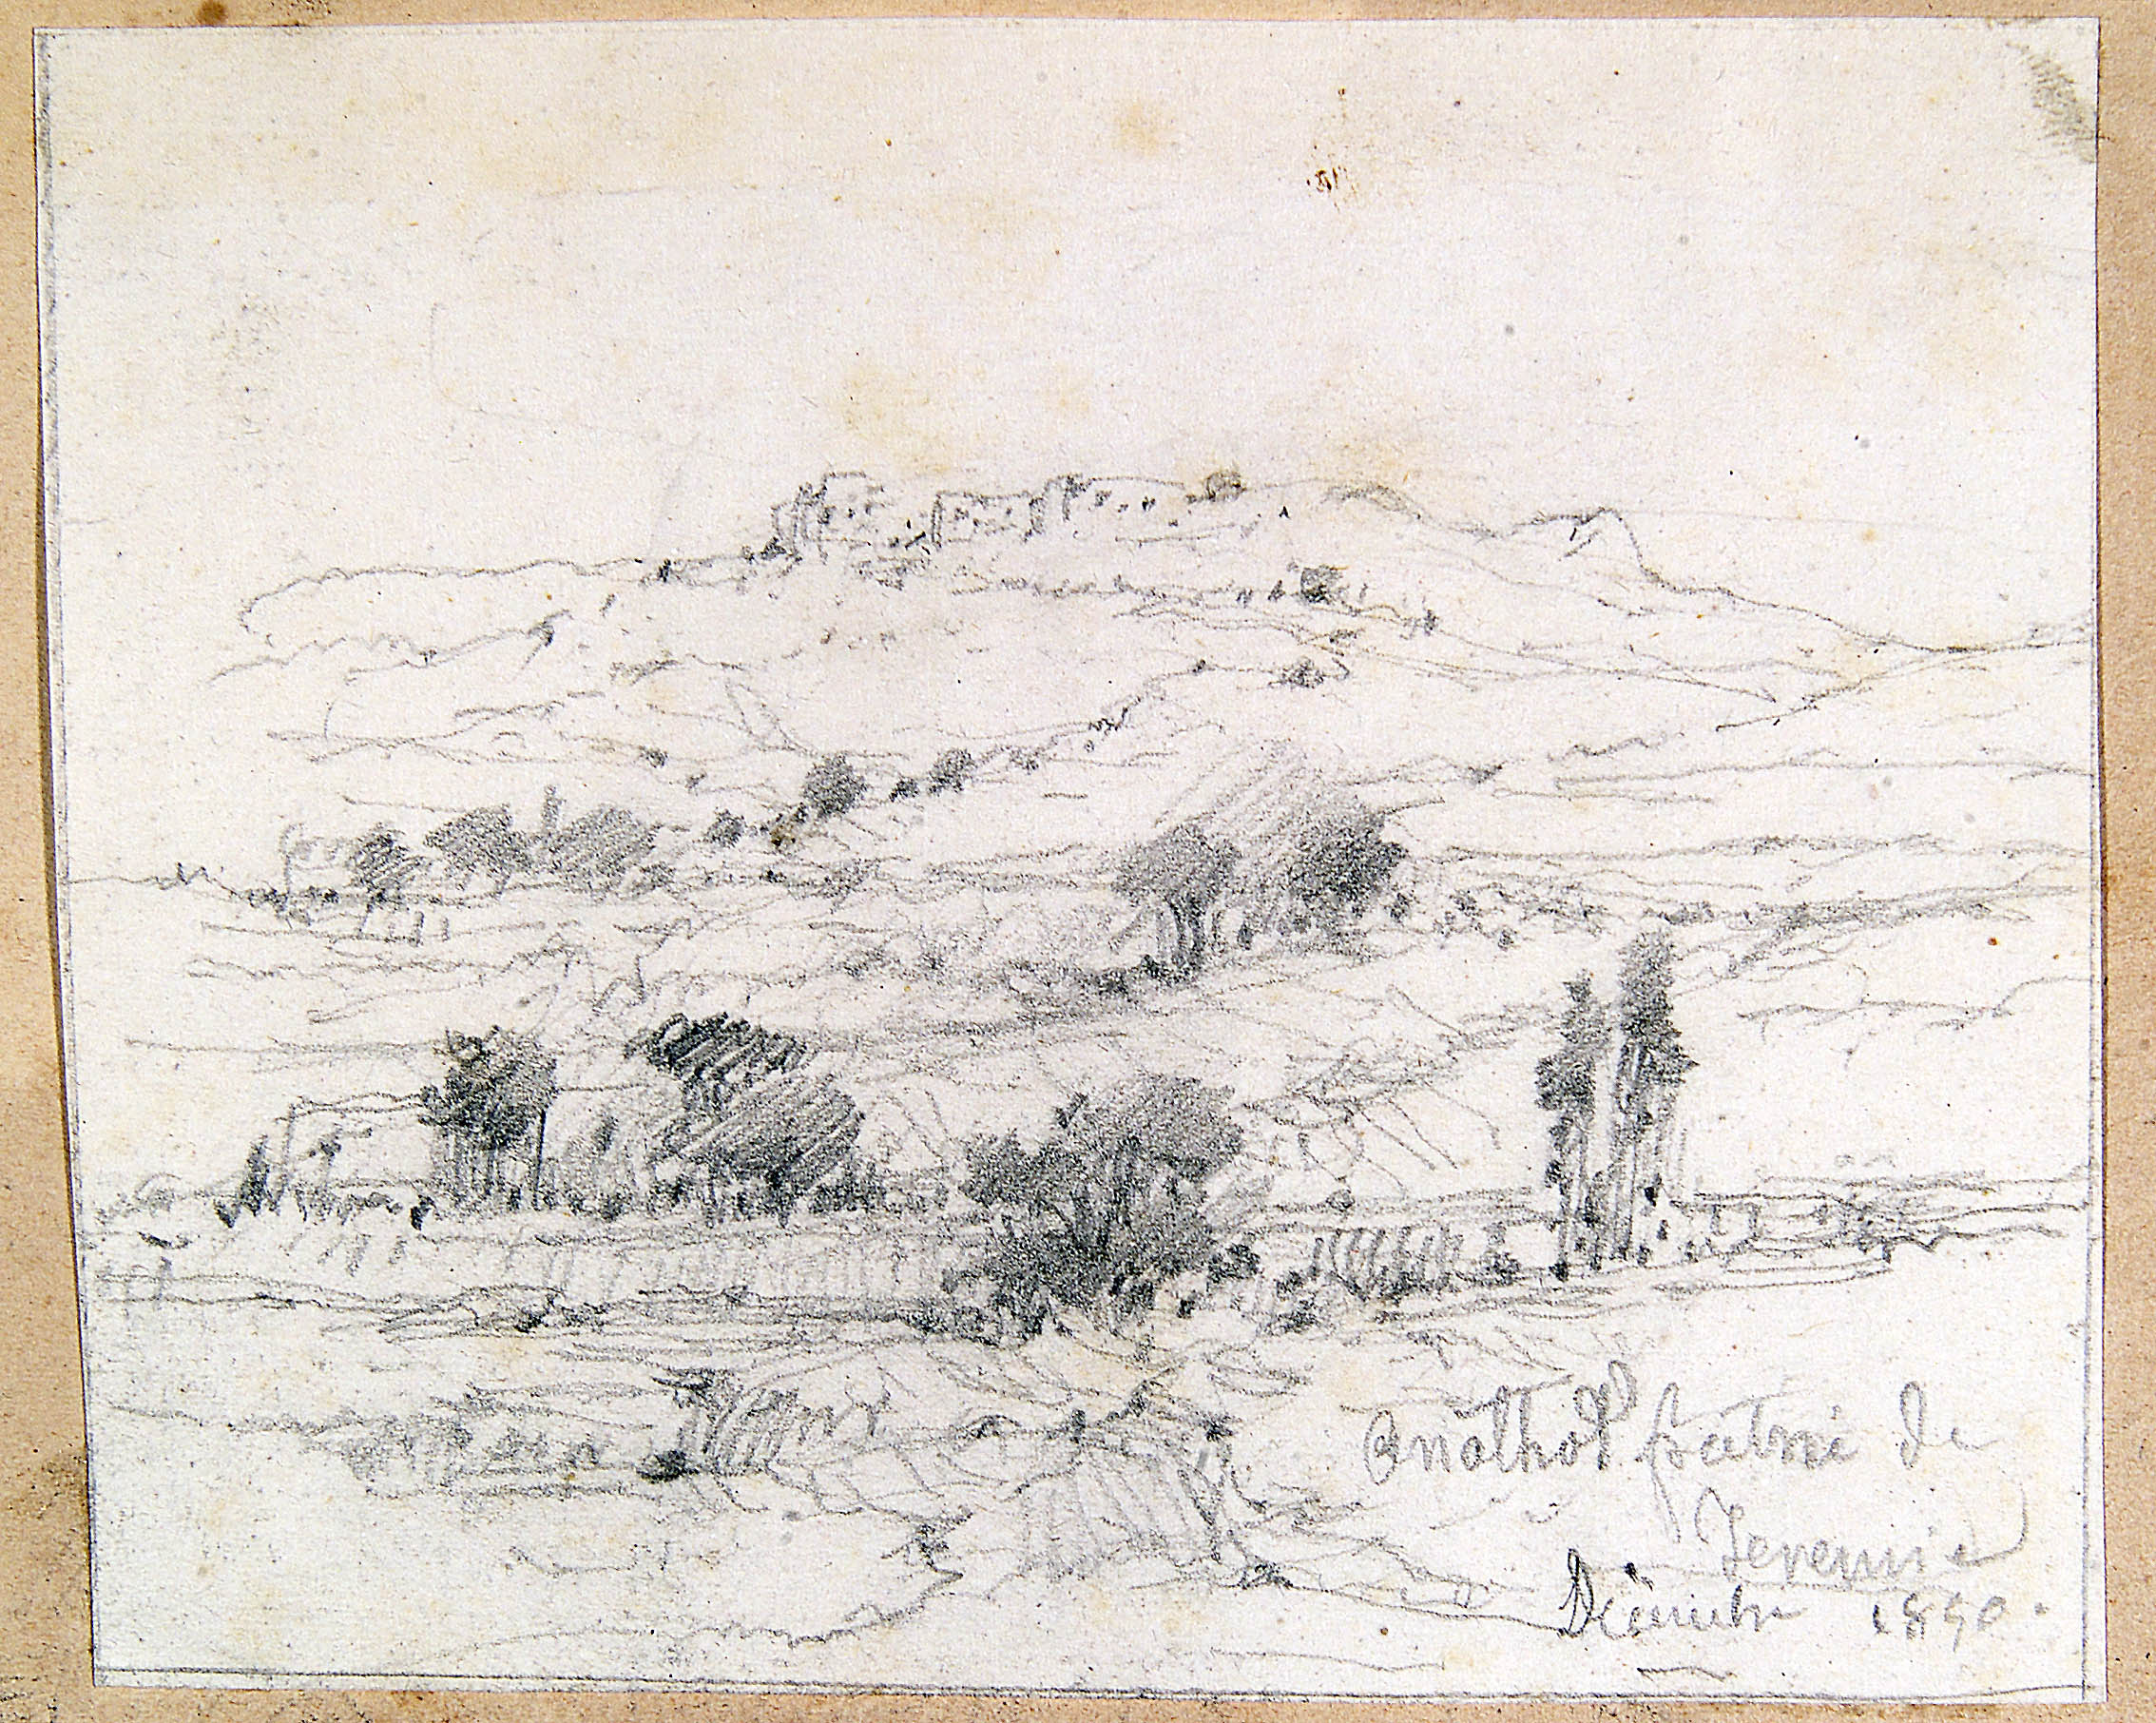 Anathot patrie de
Jeremie
Décembre 1850.